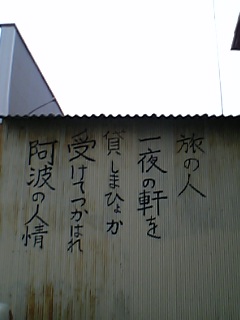 旅の人
一夜の軒を
貸しまひょか
受けてつかはれ
阿波の人情